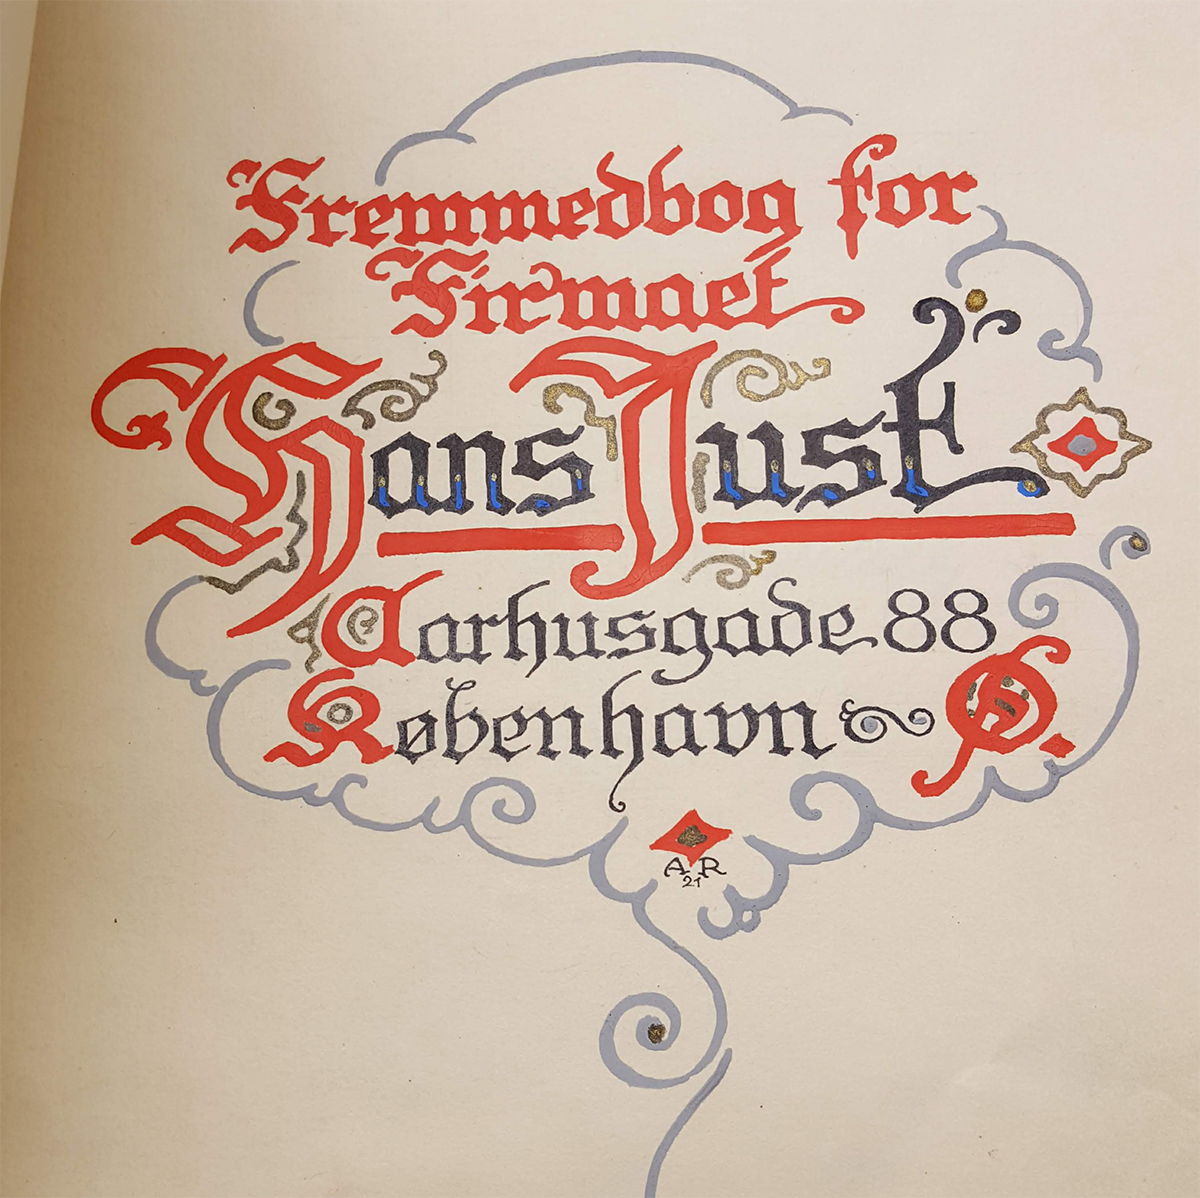 Fremmedbog for
Firmaet
Hans Just
Aarhusgade 88
København Ø.
A R
21